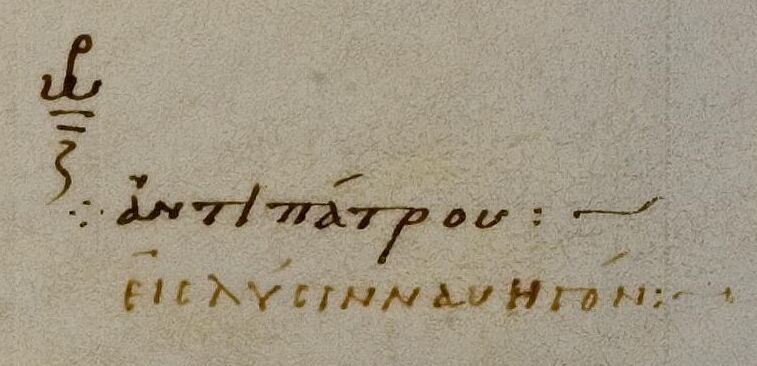 ἀντιπάτρου :
εἰς λύσιν ναυηγόν :